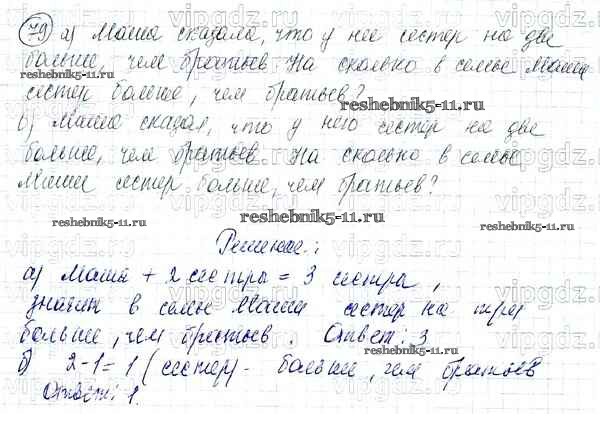 79 а) Маша сказала, что у нее сестер на две
больше, чем братьев. На сколько в семье Маши
сестер больше, чем братьев?
б) Маша сказал, что у него сестер на две
больше, чем братьев. На сколько в семье
Маши сестер больше, чем братьев?
Решение:
а) Маша + 2 сестры = 3 сестры,
значит в семье Маши сестер на три
больше, чем братьев. Ответ: 3
б) 2-1=1 (сестер) - больше, чем братьев
Ответ: 1.
reshebnik5-11.ru
reshebnik5-11.ru
reshebnik5-11.ru
reshebnik5-11.ru
reshebnik5-11.ru
vipgdz.com